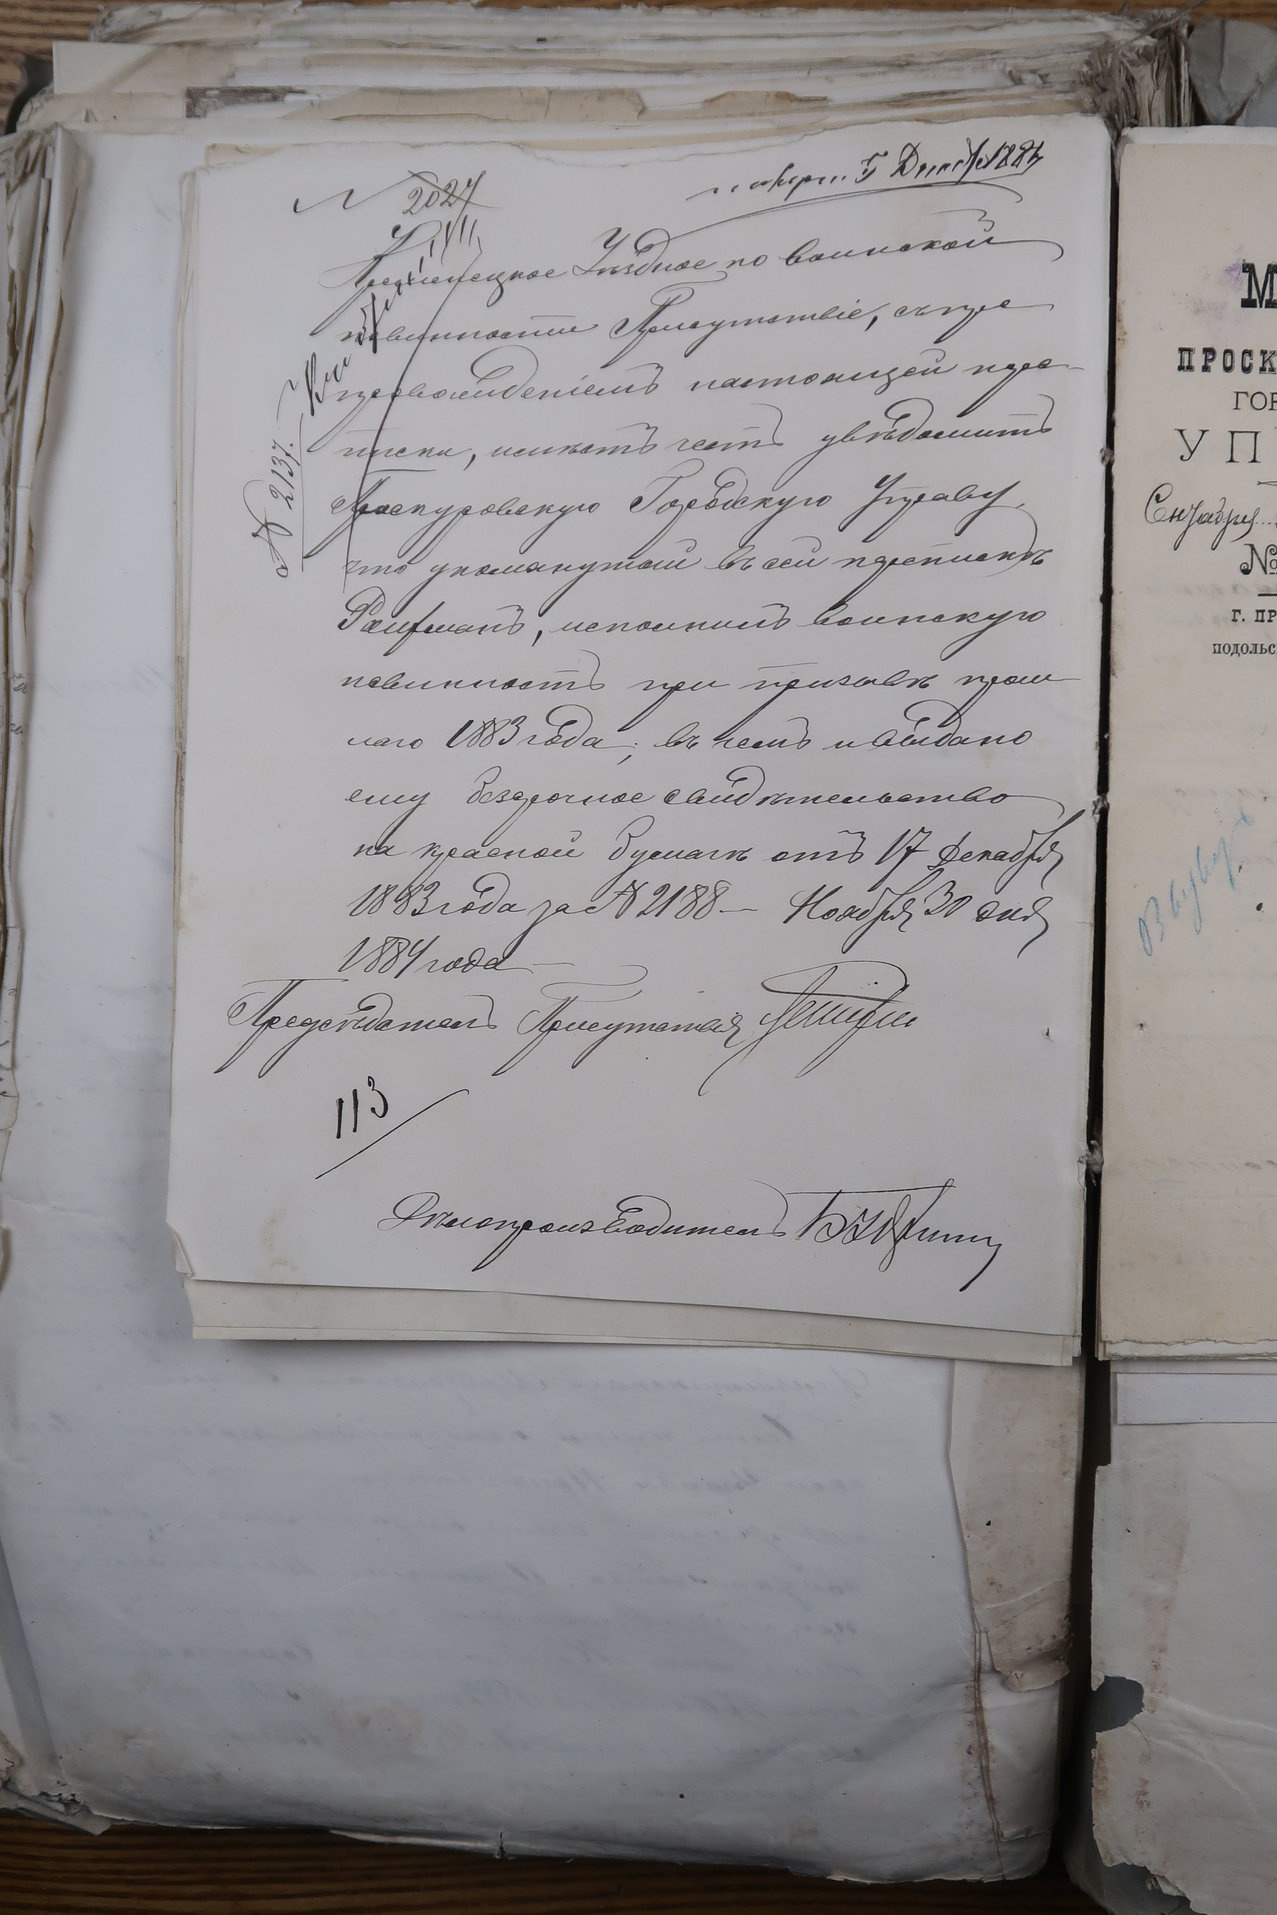 № 2027
5 Дек. 1884
Кременецкое Уѣздное по воинской
повинности Присутствіе, съ пре
провожденіемъ настоящей пере-
писки, имѣетъ честь увѣдомить
Проскуровскую Городскую Управу,
что упомянутый въ сей перепискѣ
исполнилъ воинскую
повинность при призывѣ прош
лаго 1883 года; въ чемъ и выдано
ему безсрочное свидѣтельство
на красной бумагѣ отъ 17 Декабря
1883 года за № 2188 — Ноября 30 дня
1884 года —
Предсѣдатель Присутствія
113
Дѣлопроизводитель
№ 2137.
М
ПРОСК
ГОР
УП
№
Г. ПР
ПОДОЛЬС